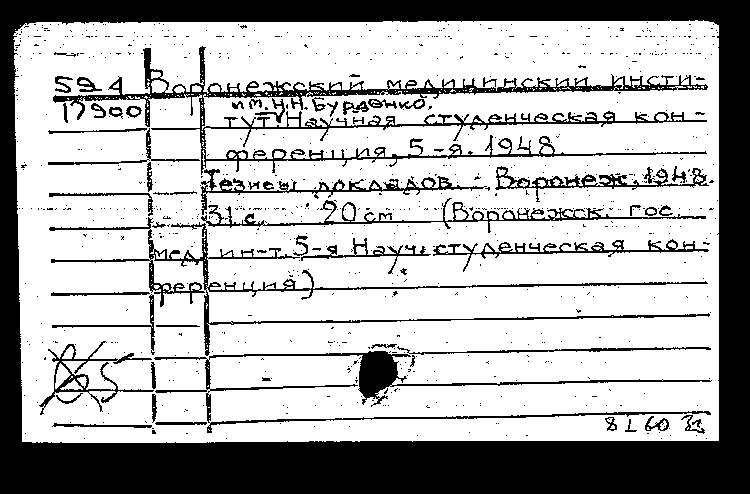 594 Воронежский медицинский инсти-
им. Н.Н. Бурденко.
17900 тут. Научная студенческая кон-
ференция, 5-я. 1948.
Тезисы докладов. - Воронеж, 1948.
- 31 с. 20 cm. (Воронежск. гос.
мед. ин-т. 5-я Науч. студенческая кон-
ференция)
5
8 I 60